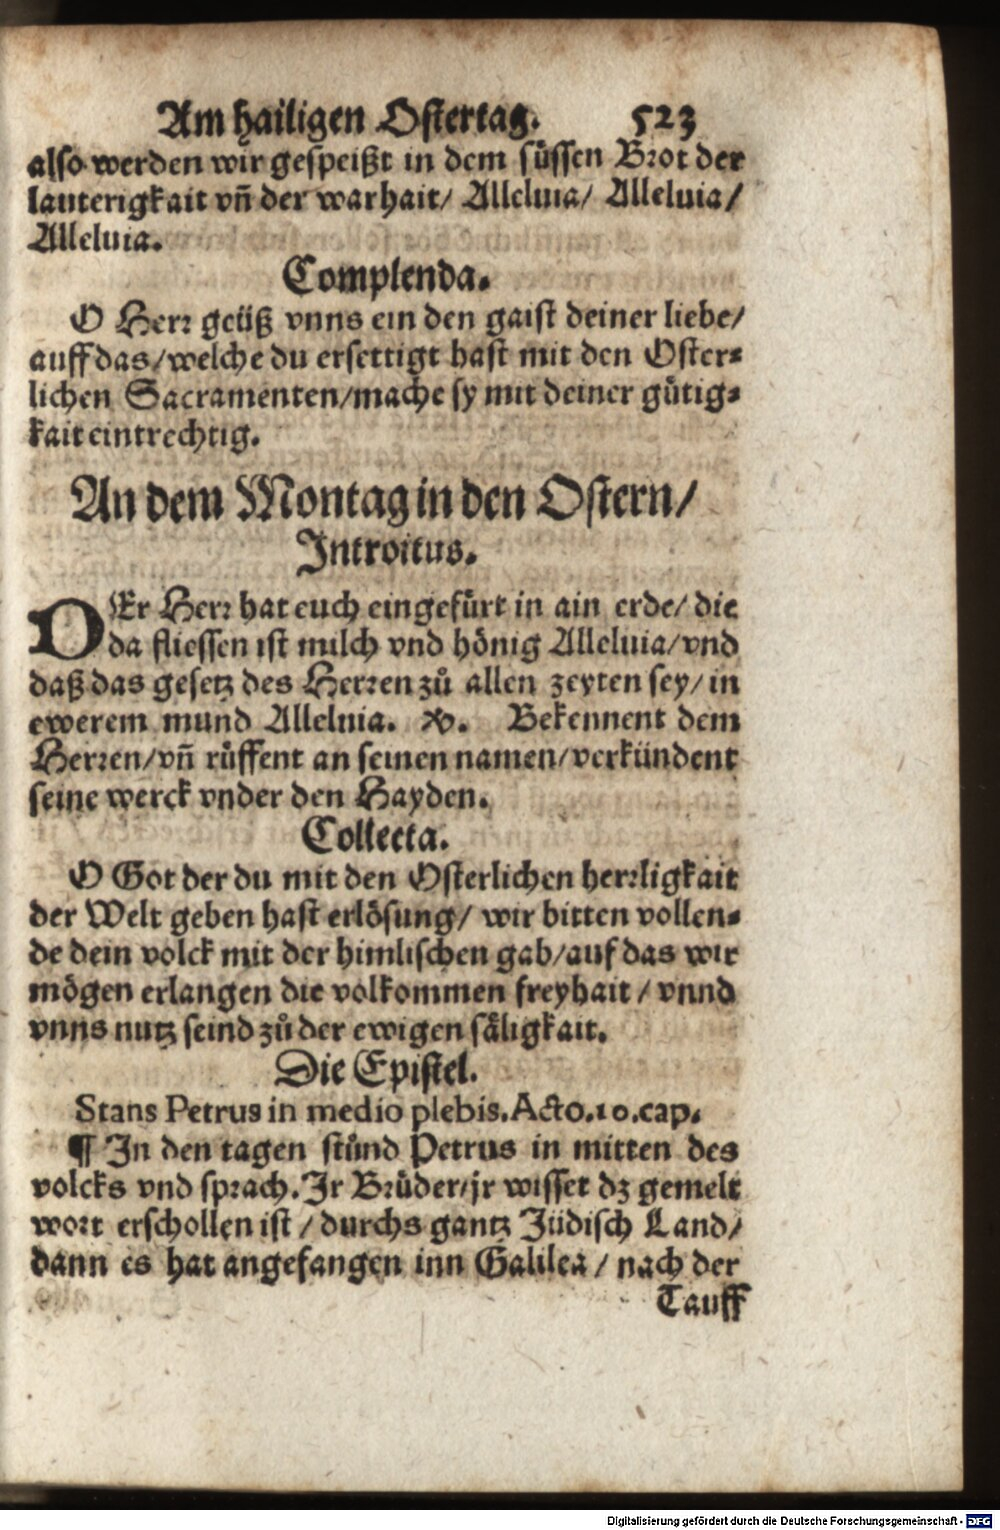 Am hailigen Ostertag. 523
also werden wir gespeißt in dem süssen Brot der
lauterigkait vñ der warhait/ Alleluia/ Alleluia/
Alleluia.
Complenda.
O Herr geüß vnns ein den gaist deiner liebe/
auff das/welche du ersettigt hast mit den Oster-
lichen Sacramenten/mache sy mit deiner gütig-
kait eintrechtig.
An dem Montag in den Ostern/
Introitus.
DEr Herr hat euch eingefürt in ain erde/ die
da fliessen ist milch vnd hönig Alleluia/vnd
daß das gesetz des Herren zů allen zeyten sey/in
ewerem mund Alleluia. ℣. Bekennent dem
Herren/vñ rüffent an seinen namen/verkündent
seine werck vnder den Hayden.
Collecta.
O Got der du mit den Osterlichen herrligkait
der Welt geben hast erlösung/ wir bitten vollen-
de dein volck mit der himlischen gab/auf das wir
mögen erlangen die volkommen freyhait/ vnnd
vnns nutz seind zů der ewigen säligkait.
Die Epistel.
Stans Petrus in medio plebis. Acto.10.cap.
¶ In den tagen stůnd Petrus in mitten des
volcks vnd sprach. Ir Brüder/jr wisset dz gemelt
wort erschollen ist/ durchs gantz Jüdisch Land/
dann es hat angefangen inn Galilea/ nach der
Tauff
Digitalisierung gefördert durch die Deutsche Forschungsgemeinschaft - DFG